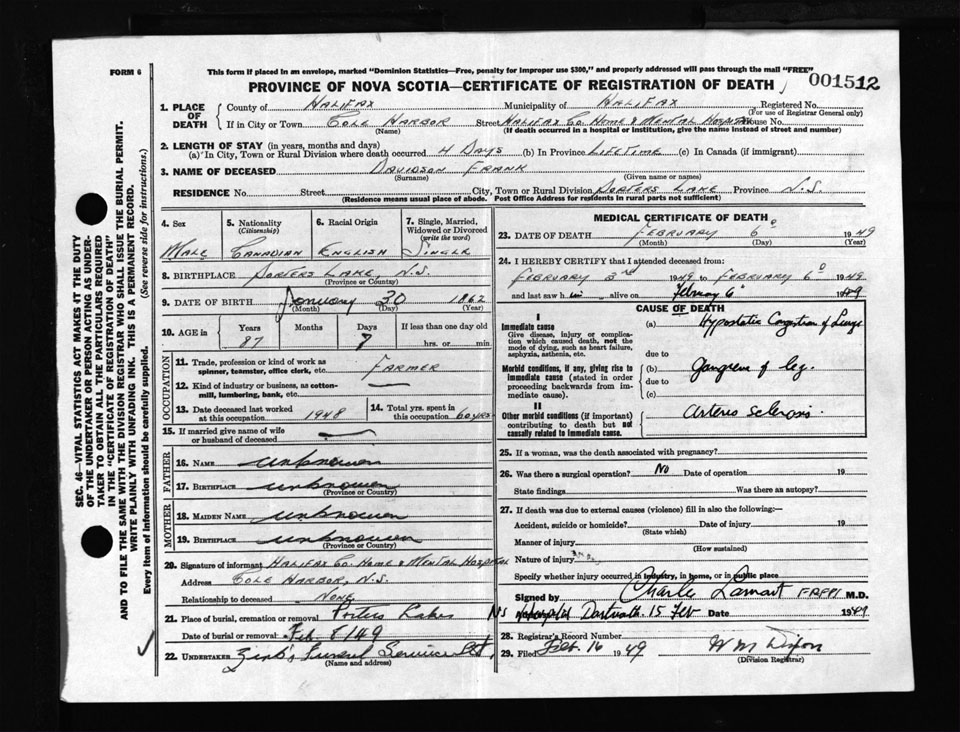 FORM 6
This form if placed in an envelope, marked "Dominion Statistics—Free, penalty for improper use $300," and properly addressed will pass through the mail "FREE"
PROVINCE OF NOVA SCOTIA—CERTIFICATE OF REGISTRATION OF DEATH
001512
1. PLACE OF DEATH
County of HALIFAX Municipality of HALIFAX Registered No.
(For use of Registrar General only)
If in City or Town COLE HARBOR Street HALIFAX CO. HOME & MENTAL HOSPITAL House No.
(Name) (If death occurred in a hospital or institution, give the name instead of street and number)
2. LENGTH OF STAY (in years, months and days)
(a) In City, Town or Rural Division where death occurred 4 DAYS (b) In Province LIFETIME (c) In Canada (if immigrant)
3. NAME OF DECEASED DAVIDSON FRANK
(Surname) (Given name or names)
RESIDENCE No. Street City, Town or Rural Division PORTERS LAKE Province N.S.
(Residence means usual place of abode. Post Office Address for residents in rural parts not sufficient)
4. Sex
MALE
5. Nationality (Citizenship)
CANADIAN
6. Racial Origin
ENGLISH
7. Single, Married, Widowed or Divorced (write the word)
SINGLE
8. BIRTHPLACE PORTERS LAKE, N.S.
(Province or Country)
9. DATE OF BIRTH January 30 1862
(Month) (Day) (Year)
10. AGE in
Years Months Days If less than one day old
87 7 hrs. or min.
OCCUPATION
11. Trade, profession or kind of work as spinner, teamster, office clerk, etc. FARMER
12. Kind of industry or business, as cotton-mill, lumbering, bank, etc. —
13. Date deceased last worked at this occupation 1948
14. Total yrs. spent in this occupation 60 YRS
15. If married give name of wife or husband of deceased —
FATHER
16. NAME unknown
17. BIRTHPLACE unknown
(Province or Country)
MOTHER
18. MAIDEN NAME unknown
19. BIRTHPLACE unknown
(Province or Country)
20. Signature of informant HALIFAX CO. HOME & MENTAL HOSPITAL
Address COLE HARBOR, N.S.
Relationship to deceased NONE
21. Place of burial, cremation or removal Porters Lake
Date of burial or removal Feb. 8/49
22. UNDERTAKER Zink's Funeral Service Ltd.
(Name and address)
MEDICAL CERTIFICATE OF DEATH
23. DATE OF DEATH FEBRUARY 6 1949
(Month) (Day) (Year)
24. I HEREBY CERTIFY that I attended deceased from:
FEBRUARY 3RD 1949 to FEBRUARY 6 1949
and last saw him alive on February 6 1949
CAUSE OF DEATH
I
Immediate cause
Give disease, injury or complication which caused death, not the mode of dying, such as heart failure, asphyxia, asthenia, etc.
(a) Hypostatic Congestion of Lungs
due to
Morbid conditions, if any, giving rise to immediate cause (stated in order proceeding backwards from immediate cause).
(b) Gangrene of leg.
due to
(c)
II
Other morbid conditions (if important) contributing to death but not causally related to immediate cause.
Arterio sclerosis.
25. If a woman, was the death associated with pregnancy?
26. Was there a surgical operation? No Date of operation 19
State findings Was there an autopsy?
27. If death was due to external causes (violence) fill in also the following:—
Accident, suicide or homicide? Date of injury 19
(State which)
Manner of injury
(How sustained)
Nature of injury
Specify whether injury occurred in industry, in home, or in public place
Signed by Charles Lamont M.D.
Dartmouth 15 Feb Date 1949
28. Registrar's Record Number
29. Filed Feb. 16 1949 W M Dixon
(Division Registrar)
SEC. 46—VITAL STATISTICS ACT MAKES IT THE DUTY
OF THE UNDERTAKER OR PERSON ACTING AS UNDER-
TAKER TO OBTAIN ALL THE PARTICULARS REQUIRED
IN THE "CERTIFICATE OF REGISTRATION OF DEATH"
AND TO FILE THE SAME WITH THE DIVISION REGISTRAR WHO SHALL ISSUE THE BURIAL PERMIT.
WRITE PLAINLY WITH UNFADING INK. THIS IS A PERMANENT RECORD.
Every item of information should be carefully supplied. (See reverse side for instructions.)